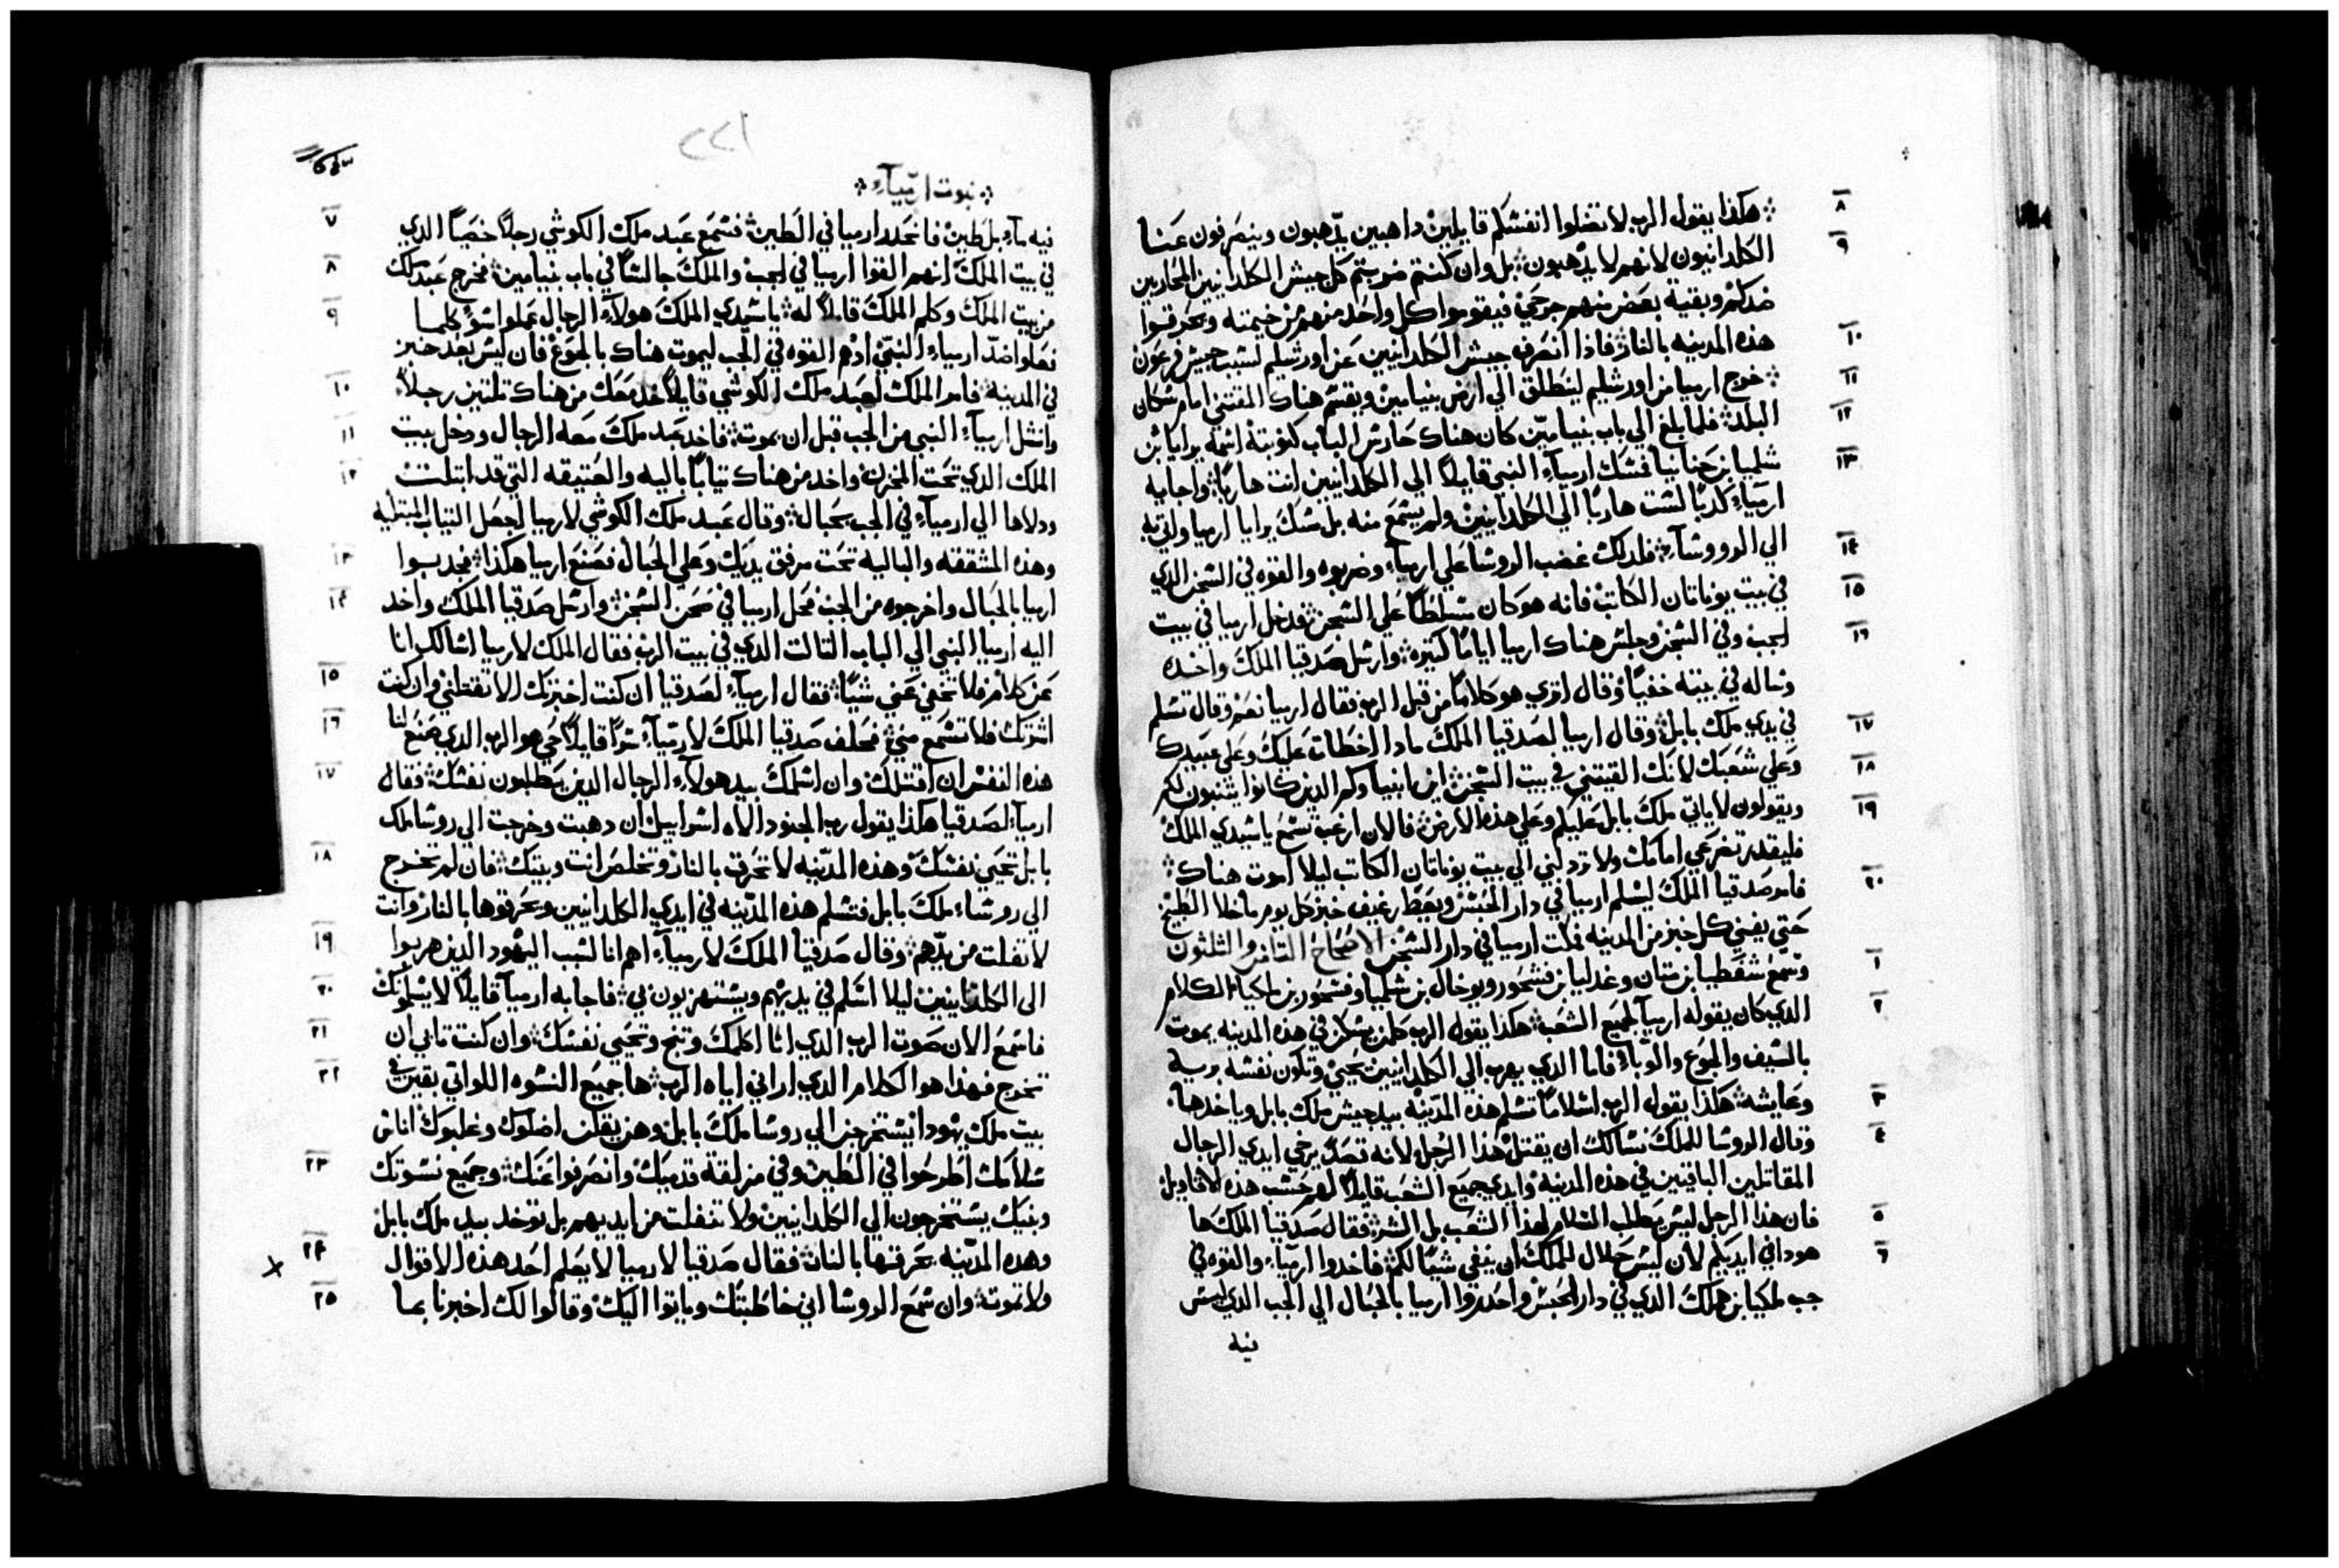 هكذا يقول الرب لا تضلوا انفسكم قايلين داهبين يدهبون وينصرفون عنا
الكلدانيون لانهم لا يدهبون بل وان كنتم ضربتم كل جيش الكلدانيين المحاربين
ضدكم وبقية بعض منهم جرحي فيقوموا كل واحد منهم من خيمته ويحرقوا
هذه المدينه بالنار فاذا انصرف جيش الكلدانيين عن اورشليم لسبب جيش فرعون
خرج ارميا من اورشليم لينطلق الي ارض بنيامين ويقسم هناك المقتني امام سكان
البلد فلما بلغ الي باب بنيامين كان هناك حارس الباب كنوبته اسمه يرايا بن
شلميا بن حنانيا فمسك ارمياء النبي قايلاً الي الكلدانيين انت هارباً واجابه
ارمياء كدباً لست هارباً الي الكلدانيين ولم يسمع منه بل مسك يرايا ارميا واتي به
الي الرووساء فلدلك غضب الروسا علي ارمياء وضربوه والقوه في السجن الدي
في بيت يوناتان الكاتب فانه هو كان مسلطاً علي السجن فدخل ارميا في بيت
الجب وفي السجن وجلس هناك ارميا اياماً كثيره وارسل صدقيا الملك واخده
وساله في بيته خفياً وقال اتري هو كلاماً من قبل الرب فقال ارميا نعم وقال تسلم
في يدي ملك بابل وقال ارميا لصدقيا الملك مادا اخطات عليك وعلي عبيدك
وعلي شعبك لانك القيتني في بيت السجن اين انبياوكم الدين كانوا يتنبون لكم
ويقولون لا ياتي ملك بابل عليكم وعلي هذه الارض فالان ارغب تسمع ياسيدي الملك
فليقدر تضرعي امامك ولا تردلني الي بيت يوناتان الكاتب ليلا اموت هناك
فامر صدقيا الملك ليسلم ارميا في دار الحبس ويعط رغيف خبز كل يوم ما خلا الطبيخ
حتي يفني كل خبز من المدينه فمكت ارميا في دار السجن الاصحاح الثامن والثلثون
وسمع شفطيا بن متان وغدليا بن فشحور ويوخال بن شلميا وفشحور بن ملكيا الكلام
الدي كان يقوله ارميا لجميع الشعب هكذا يقول الرب كلمن يسكن في هذه المدينه يموت
بالسيف والجوع والوباء فاما الدي يهرب الي الكلدانيين يحيي وتكون نفسه بريه
وعايشه هكذا يقول الرب اسلاماً تسلم هذه المدينه بيد جيش ملك بابل وياخدها
وقال الروسا للملك نسالك ان يقتل هذا الرجل لانه تصدً يرخي ايدي الرجال
المقاتلين الباقيين في هذه المدينه وايدي جميع الشعب قايلاً لهم حسب هده الاقاويل
فان هذا الرجل ليس يطلب السلام لهذا الشعب بل الشر فقال صدقيا الملك ها
هودا في ايديكم لان ليس حلال للملك ان ينفي شياً لكم فاخدوا ارمياء والقوه في
جب ملكيا بن هملك الدي في دار الحبس واحدروا ارميا بالحبال الي الجب الدي ليس
فيه
٨
٩
١٠
١١
١٢
١٣
١٤
١٥
١٦
١٧
١٨
١٩
٢٠
١
٢
٣
٤
٥
٦
٢٢١
نبوت ارمياء
فيه ماء بل طين فانحدر ارميا في الطين فسمع عبد ملك الكوشي رجلاً خصياً الدي
في بيت الملك انهم القوا ارميا في الجب والملك جالساً في باب بنيامين فخرج عبد ملك
من بيت الملك وكلم الملك قايلاً له ياسيدي الملك هولاء الرجال عملوا سوً كلما
فعلوا ضدّ ارمياء النبي ادهم القوه في الجب ليموت هناك بالجوع فان ليس بعد خبز
في المدينه فامر الملك لعبد ملك الكوشي قايلاً خد معك من هناك تلتين رجلاً
وانشل ارمياء النبي من الجب قبل ان يموت فاخد عبد ملك معه الرجال ودخل بيت
الملك الدي تحت المخزن واخد من هناك تياباً باليه والعتيقه التي قد ابتلت
ودلاها الي ارمياء في الجب بحبال وقال عبد ملك الكوشي لارميا اجعل التياب المبتليه
وهذه المشققه والباليه تحت مرفق يديك وعلي الحبال فصنع ارميا هكذا فجدبوا
ارميا بالحبال واخرجوه من الجب فحل ارميا في صحن السجن وارسل صدقيا الملك واخد
اليه ارميا النبي الي الباب التالت الدي في بيت الرب فقال الملك لارميا اسالك انا
عن كلام فلا تخفي عني شياً فقال ارمياء لصدقيا ان كنت اخبرتك الا تقتلني وان كنت
اشرتك فلا تسمع مني فحلف صدقيا الملك لارمياء سراً قايلاً حي هو الرب الدي صنع لنا
هذه النفس ان اقتلك وان اسلمك بيد هولاء الرجال الدين يطلبون نفسك فقال
ارميا لصدقيا هكذا يقول رب الجنود الاه اسراييل ان دهبت وخرجت الي روسا ملك
بابل تحيي نفسك وهذه المدينه لا تحرق بالنار وتخلص انت وبيتك فان لم تخرج
الي روساء ملك بابل فتسلم هذه المدينه في ايدي الكلدانيين ويحرقوها بالنار وانت
لا تفلت من يدهم وقال صدقيا الملك لارمياء اهم انا لسبب اليهود الدين هربوا
الي الكلدانيين ليلا اسلم في يديهم ويستهزيون بي فاجابه ارميا قايلاً لا يسلمونك
فاسمع الان صوت الرب الدي انا اكلمك وتنجح وتحيي نفسك وان كنت تابي ان
تخرج فهذا هو الكلام الدي اراني اياه الرب ها جميع النسوه اللواتي بقين في
بيت ملك يهودا يستخرجن الي روسا ملك بابل وهن يقلن اضلوك وغلبوك اناس
سلامك اطرحوا في الطين وفي مزلقة قدميك وانصرفوا عنك وجميع نسوتك
وبنيك يستخرجون الي الكلدانيين ولا تنفلت من ايديهم بل توخد بيد ملك بابل
وهده المدينه يحرقها بالنار فقال صدقيا لارميا لا يعلم احد هذه الاقوال
ولا تموت وان سمع الروسا اني خاطبتك وياتوا اليك وقالوا لك اخبرنا بما
٧
٨
٩
١٠
١١
١٢
١٣
١٤
١٥
١٦
١٧
١٨
١٩
٢٠
٢١
٢٢
٢٣
٢٤
٢٥